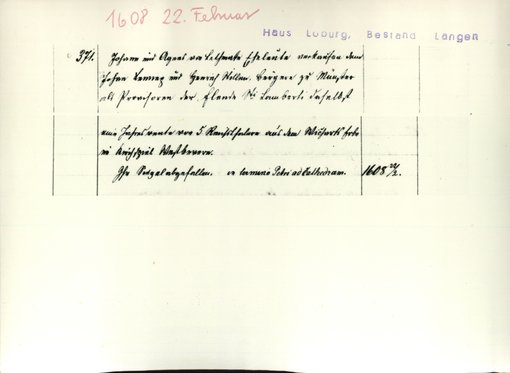 1608 22. Februar
Haus Loburg, Bestand Langen
371. Johann und Agnes von Eheleute verkaufen dem
Johan und Henrich Bürgere zu Münster
als Provisoren der Elende St. Lamberti daselbst
eine Jahresrente von 5 Reichsthalern aus dem Erbe
im Kirchspiel Westbevern.
Ihr Siegel abgefallen. in termino Petri ad Cathedram. 1608 22/2.